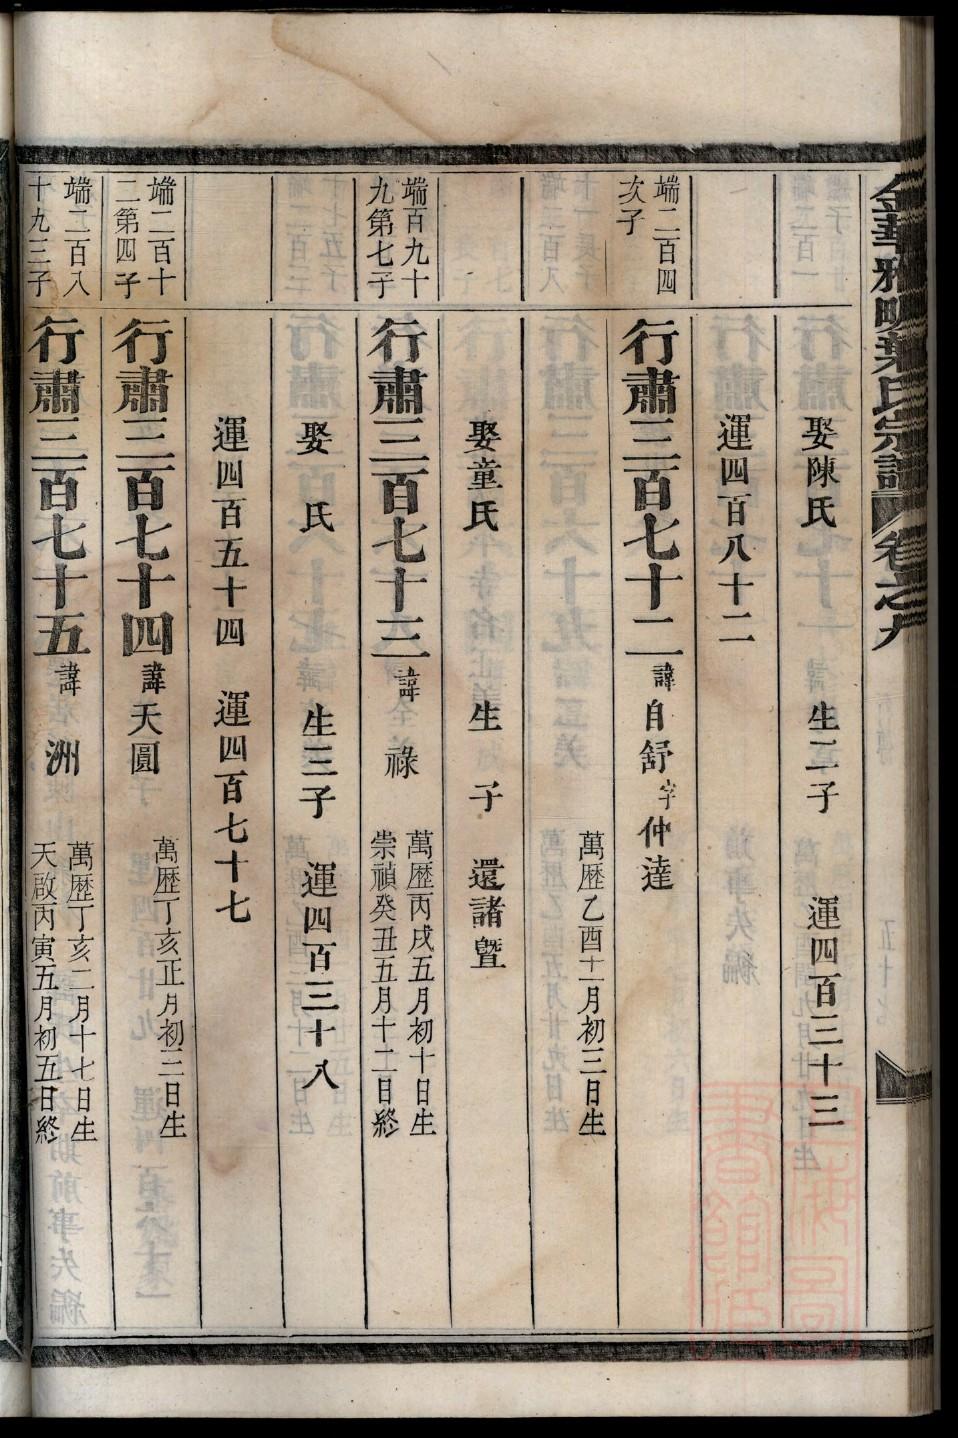 金華雅畈葉氏宗譜 卷之九
娶陳氏 生二子 運四百三十三
運四百八十二
端二百四
次子
行肅三百七十二 諱自舒 字仲達
萬歴乙酉十一月初三日生
娶童氏 生 子 還諸暨
端百九十
九第七子
行肅三百七十三 諱 祿
萬歴丙戌五月初十日生
崇禎癸丑五月十二日終
娶 氏 生三子 運四百三十八
運四百五十四 運四百七十七
端二百十
二第四子
行肅三百七十四 諱天圓
萬歴丁亥正月初三日生
端二百八
十九三子
行肅三百七十五 諱 洲
萬歴丁亥二月十七日生
天啟丙寅五月初五日終